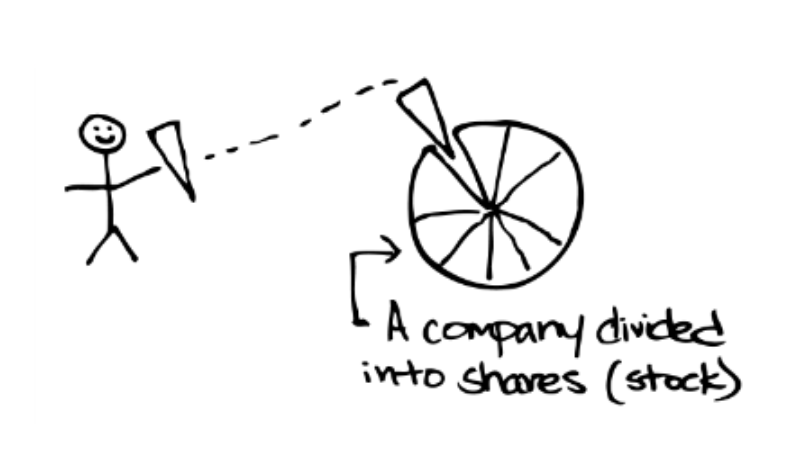 A company divided
into shares (stock)